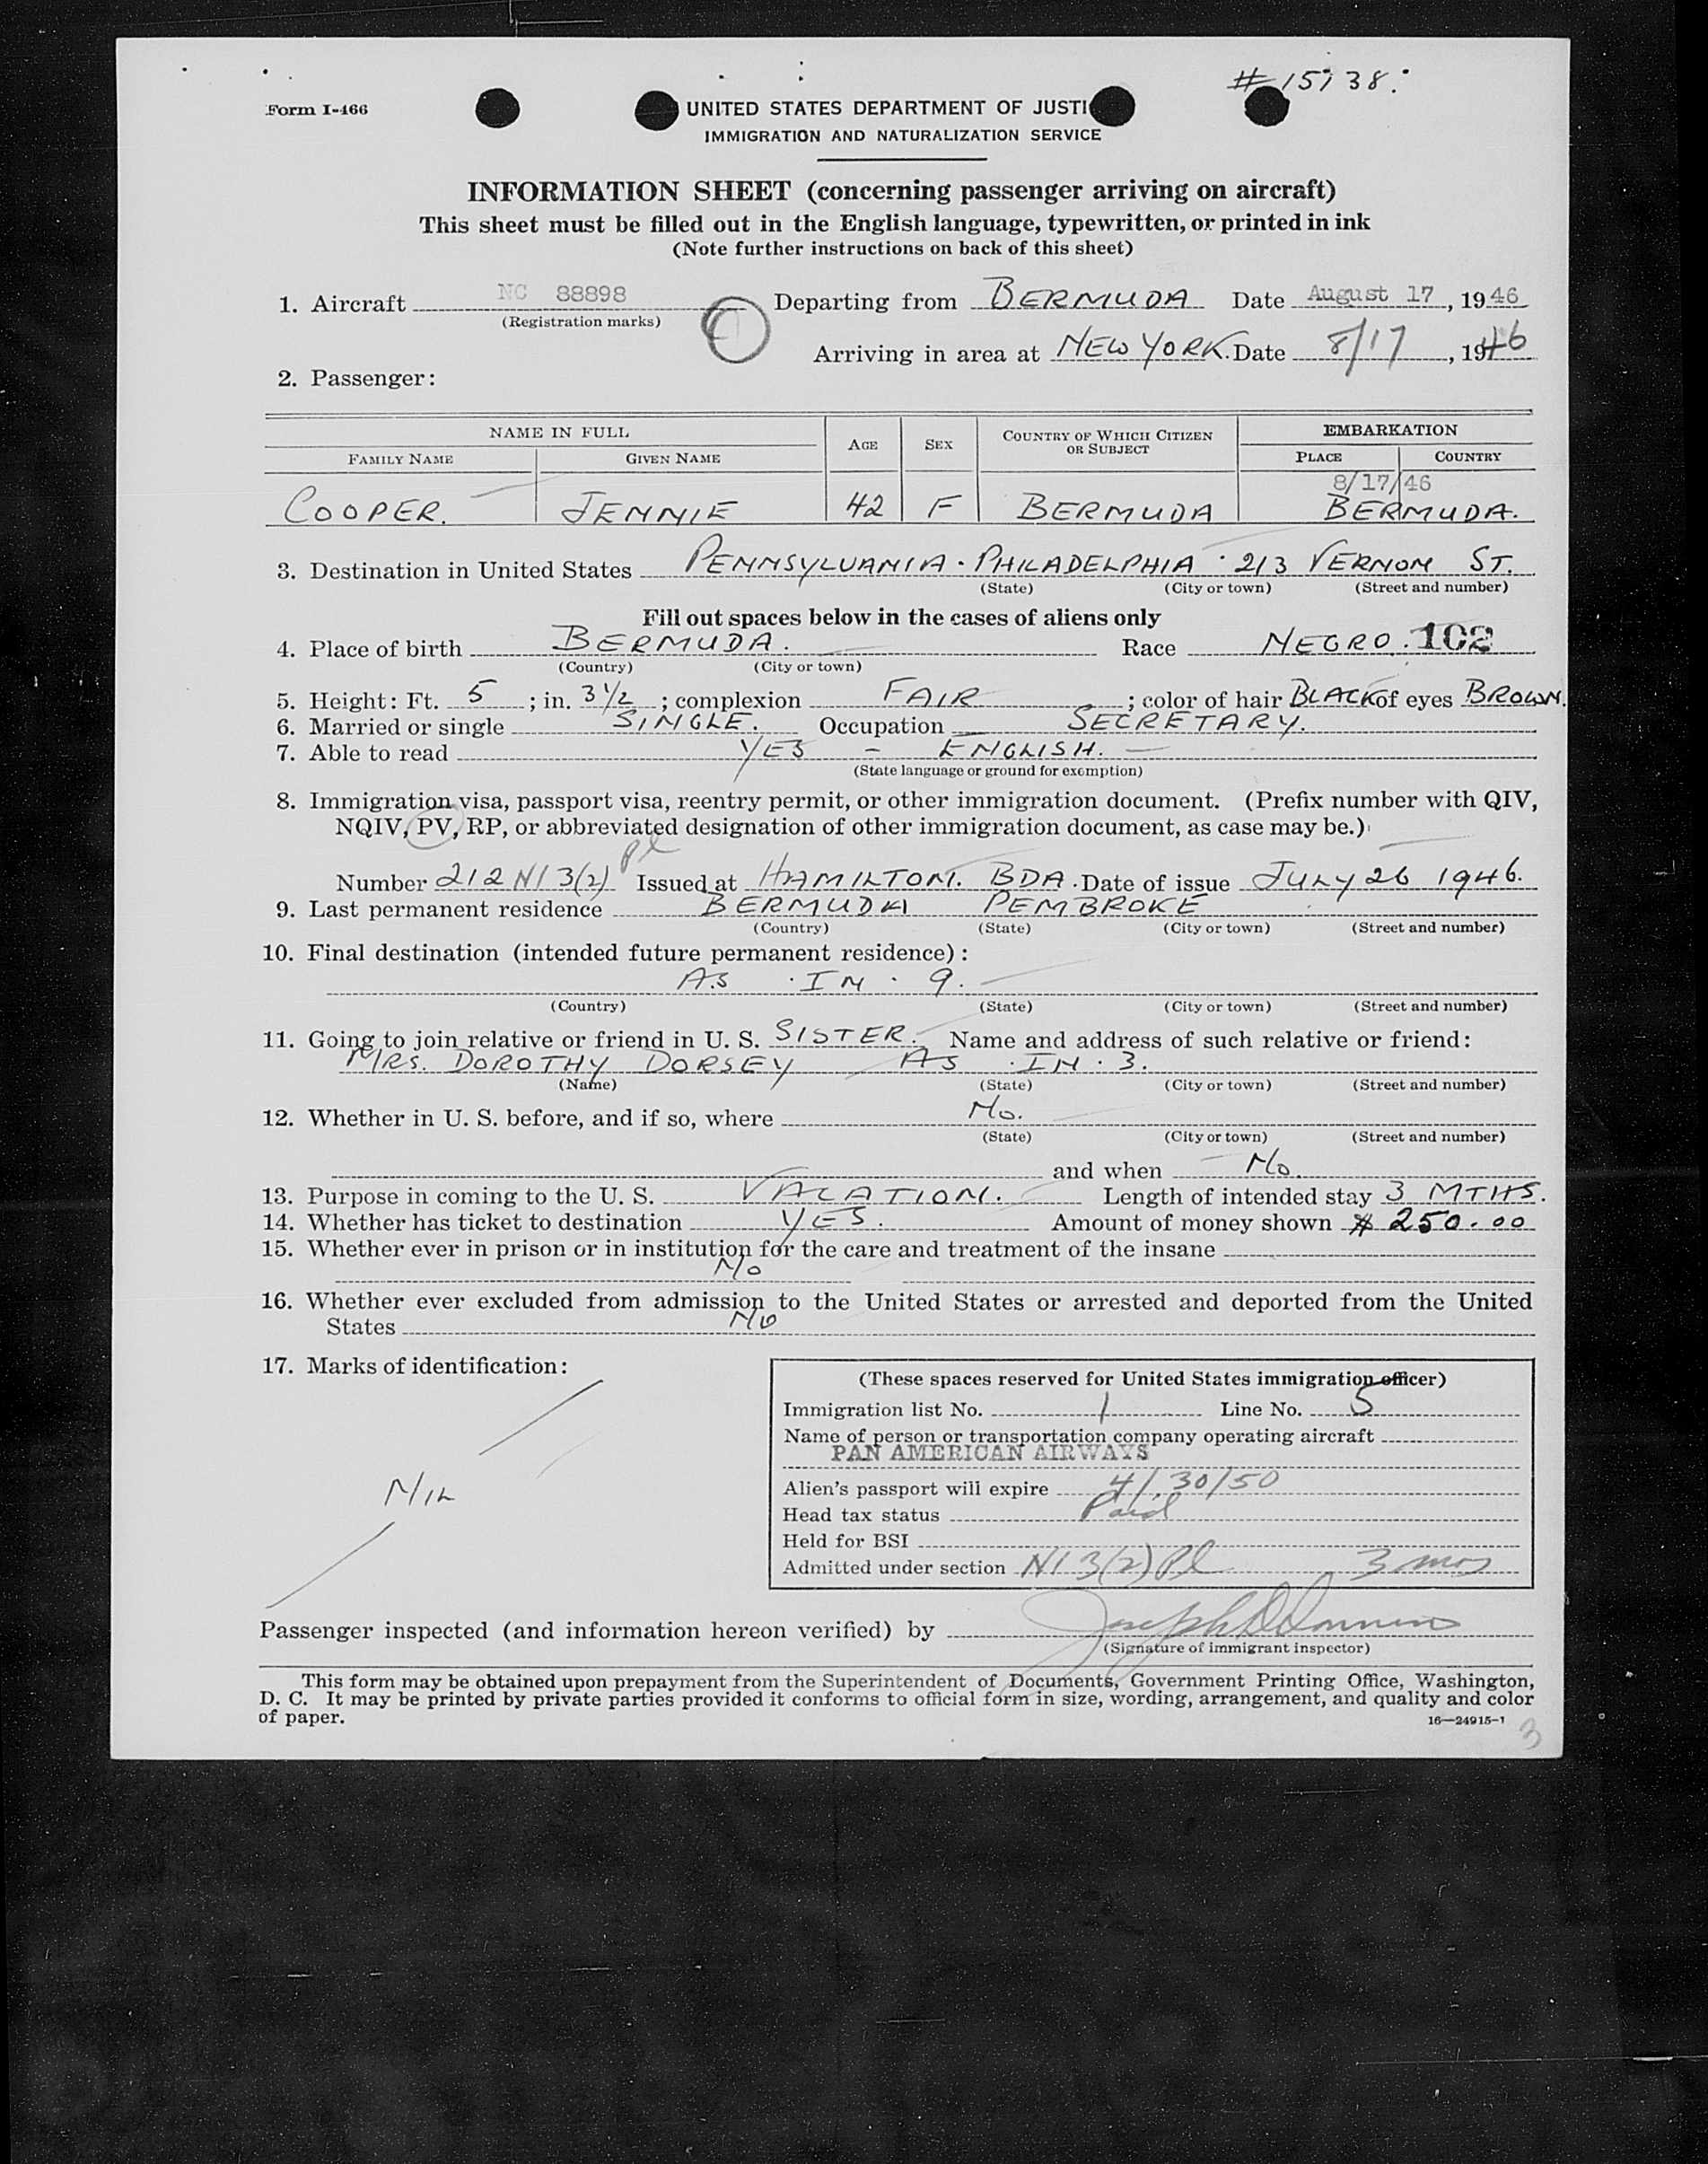 # 15138
Form I-466
UNITED STATES DEPARTMENT OF JUSTI
IMMIGRATION AND NATURALIZATION SERVICE
INFORMATION SHEET (concerning passenger arriving on aircraft)
This sheet must be filled out in the English language, typewritten, or printed in ink
(Note further instructions on back of this sheet)
1. Aircraft NC 88898 Departing from BERMUDA Date August 17, 1946
(Registration marks)
Arriving in area at NEW YORK. Date 8/17, 1946
2. Passenger:
NAME IN FULL AGE SEX COUNTRY OF WHICH CITIZEN OR SUBJECT EMBARKATION
FAMILY NAME GIVEN NAME PLACE COUNTRY
8/17/46
COOPER. JENNIE 42 F BERMUDA BERMUDA.
3. Destination in United States PENNSYLVANIA · PHILADELPHIA · 213 VERNON ST.
(State) (City or town) (Street and number)
Fill out spaces below in the cases of aliens only
4. Place of birth BERMUDA. Race NEGRO. 102
(Country) (City or town)
5. Height: Ft. 5; in. 3 1/2; complexion FAIR; color of hair BLACK of eyes BROWN.
6. Married or single SINGLE. Occupation SECRETARY.
7. Able to read YES - ENGLISH.
(State language or ground for exemption)
8. Immigration visa, passport visa, reentry permit, or other immigration document. (Prefix number with QIV,
NQIV, PV, RP, or abbreviated designation of other immigration document, as case may be.)
Pl
Number 212 NI 3(2) Issued at HAMILTON. BDA. Date of issue JULY 26 1946.
9. Last permanent residence BERMUDA PEMBROKE
(Country) (State) (City or town) (Street and number)
10. Final destination (intended future permanent residence):
AS · IN · 9.
(Country) (State) (City or town) (Street and number)
11. Going to join relative or friend in U. S. SISTER. Name and address of such relative or friend:
MRS. DOROTHY DORSEY AS · IN · 3.
(Name) (State) (City or town) (Street and number)
12. Whether in U. S. before, and if so, where No.
(State) (City or town) (Street and number)
and when No.
13. Purpose in coming to the U. S. VACATION. Length of intended stay 3 MTHS.
14. Whether has ticket to destination YES. Amount of money shown $ 250.00
15. Whether ever in prison or in institution for the care and treatment of the insane
No
16. Whether ever excluded from admission to the United States or arrested and deported from the United
States No
17. Marks of identification:
NIL
(These spaces reserved for United States immigration officer)
Immigration list No. 1 Line No. 5
Name of person or transportation company operating aircraft
PAN AMERICAN AIRWAYS
Alien's passport will expire 4/30/50
Head tax status Paid
Held for BSI
Admitted under section NI 3(2) Pl 3 mos
Passenger inspected (and information hereon verified) by
(Signature of immigrant inspector)
This form may be obtained upon prepayment from the Superintendent of Documents, Government Printing Office, Washington,
D. C. It may be printed by private parties provided it conforms to official form in size, wording, arrangement, and quality and color
of paper.
16—24915-1
3